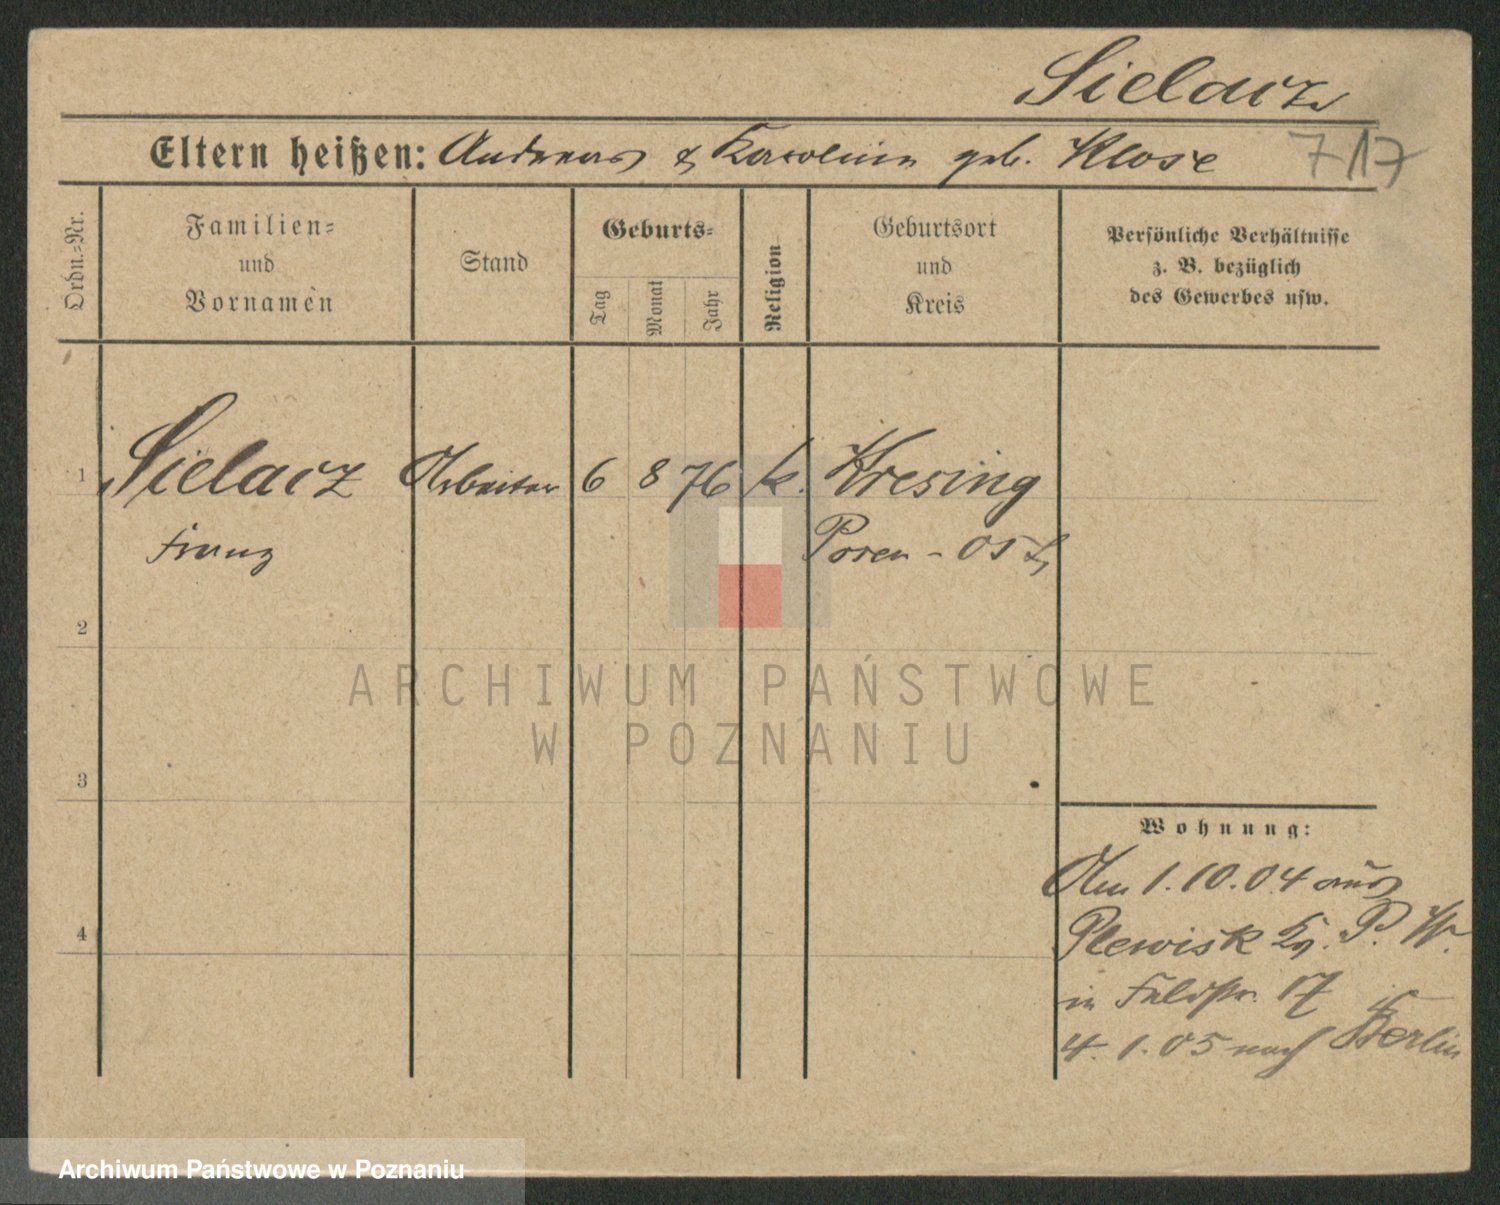 Sielarz
Eltern heißen: Andreas & Karoline geb. Klose 717
Ordn.-Nr.
Familien-
und
Vornamen
Stand
Geburts-
Tag
Monat
Jahr
Religion
Geburtsort
und
Kreis
Persönliche Verhältnisse
z. B. bezüglich
des Gewerbes usw.
1 Sielarz Arbeiter 6 8 76 k. Kresing
Franz Posen-Ost
2
ARCHIWUM PAŃSTWOWE
W POZNANIU
3
Wohnung:
Am 1.10.04 aus
4
Plewisk Kr. P. W.
in Feldstr. 17
4.1.05 nach Berlin
Archiwum Państwowe w Poznaniu